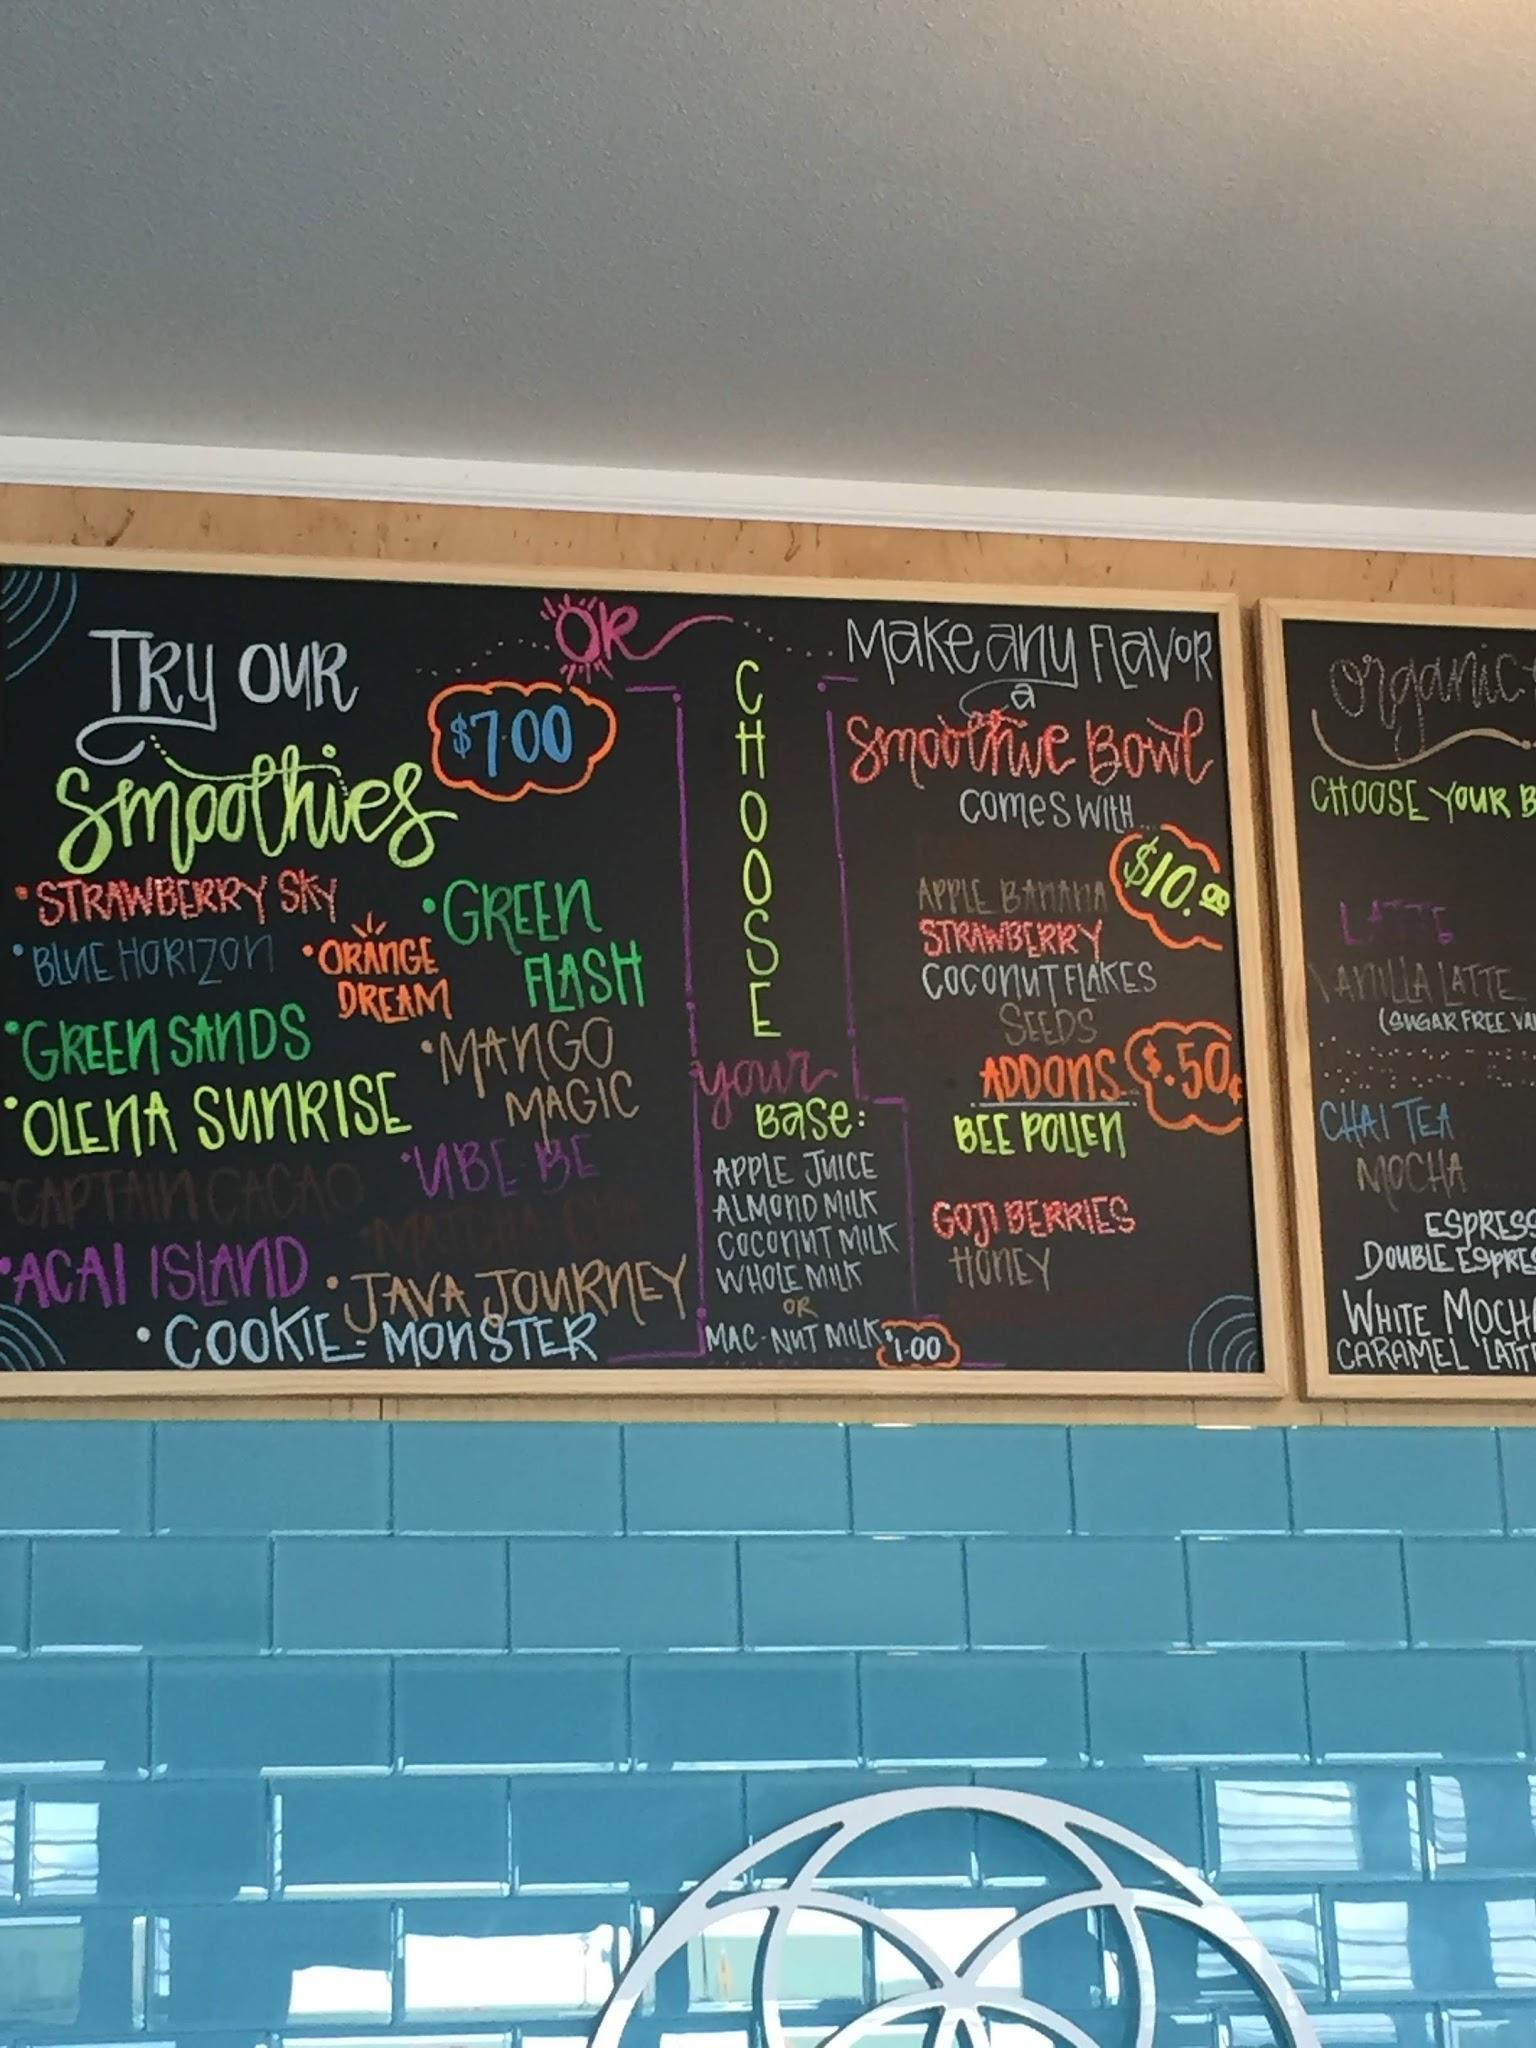 TRY OUR
Smoothies
$7.00
• STRAWBERRY SKY
• BLUE HORIZON
• ORANGE
DREAM
• GREEN
FLASH
• GREEN SANDS
• MANGO
MAGIC
• OLENA SUNRISE
• UBE-BE
• CAPTAIN CACAO
• MATCHA-
• ACAI ISLAND
• JAVA JOURNEY
• COOKIE-MONSTER
OR
CHOOSE
your
Base:
APPLE JUICE
ALMOND MILK
COCONUT MILK
WHOLE MILK
OR
MAC-NUT MILK $1.00
Make any Flavor
a
Smoothie Bowl
comes with...
$10.00
APPLE BANANA
STRAWBERRY
COCONUT FLAKES
SEEDS
ADDONS $.50¢
BEE POLLEN
GOJI BERRIES
HONEY
Organic
CHOOSE YOUR B
LATTE
VANILLA LATTE
(SUGAR FREE VAN
CHAI TEA
MOCHA
ESPRESS
DOUBLE ESPRES
WHITE MOCHA
CARAMEL LATTE